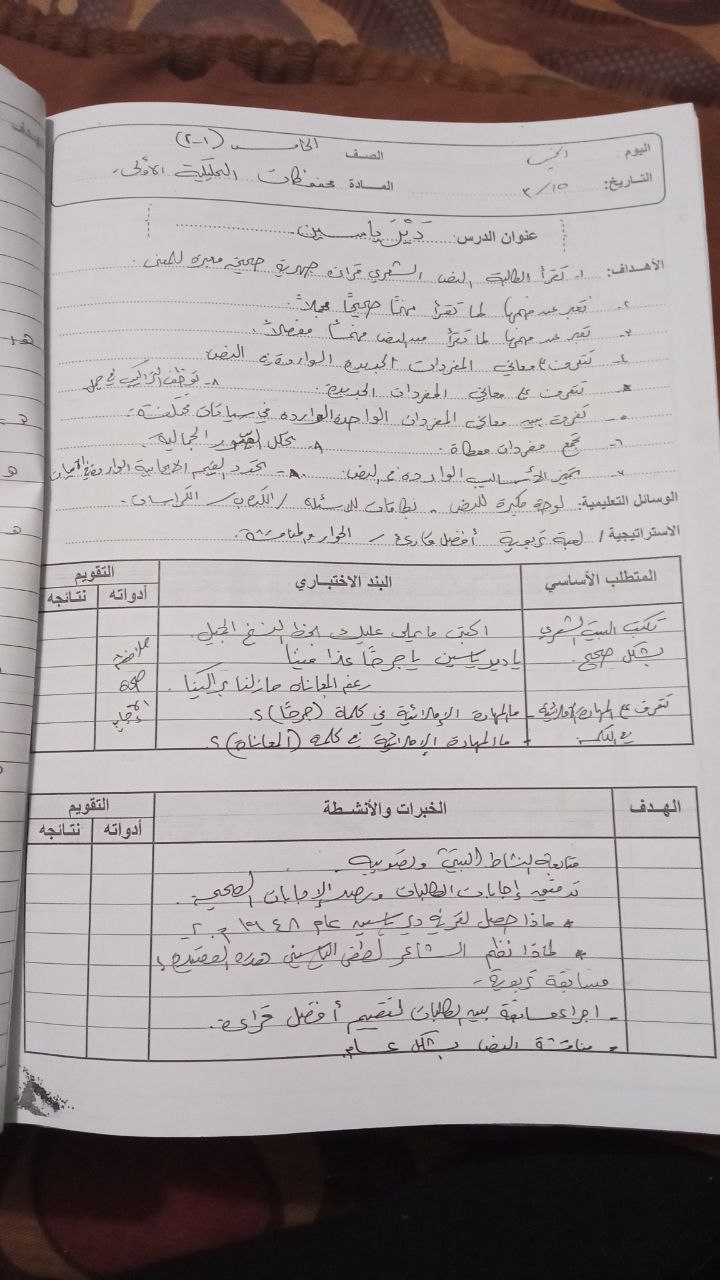 اليوم الخميس الصف الخامس (١-٢)
التاريخ: ١٥/٣ المادة محفوظات الأولى.
عنوان الدرس: دَيْرَ ياسين.
الأهداف: ١. تقرأ الطالبة النص الشعري قراءة جهرية صحيحة معبرة للمعنى.
٢. تعبر عن فهمها لما تقرأ فهمًا صحيحًا مجملاً.
٣. تعبر عن فهمها لما تقرأ من النص فهمًا مفصلاً.
٤. تتعرف معاني المفردات الجديدة الواردة في النص
تتعرف على معاني المفردات الجديدة. ٨- توظف التراكيب في جمل
٥. تفرق بين معاني المفردات الواحدة الواردة في سياقات مختلفة.
٦. تجمع مفردات معطاة. ٨ تحلل الصور الجمالية.
٧. تميز الأساليب الواردة في النص. تحدد القيم الإيجابية الواردة في الأبيات
الوسائل التعليمية: لوحة مكبرة للنص. بطاقات للأسئلة / الكتاب / الكراسات.
الاستراتيجية / لعبة تربوية أفضل قارئ / الحوار والمناقشة.
المتطلب الأساسي البند الاختباري التقويم
أدواته نتائجه
تكتب البيت الشعري اكتبي ما يملى عليك بخط النسخ الجميل.
بشكل صحيح. يا دير ياسين يا جرحًا غدا فينا ملاحظة
رغم المعاناة مازلنا براكينا. صحة
تتعرف على المهارة الإملائية - ما المهارة الإملائية في كلمة (جرحًا)؟
في الكلمة - ما المهارة الإملائية في كلمة (المعاناة)؟
الهدف الخبرات والأنشطة التقويم
أدواته نتائجه
متابعة النشاط البيتي وتصويبه.
تدقيق إجابات الطالبات ورصد الإجابات الصحيحة.
* ماذا حصل لقرية دير ياسين عام ١٩٤٨م؟
* لماذا نظم الشاعر لطفي الياسيني هذه القصيدة؟
مسابقة تربوية-
- إجراء مسابقة بين الطالبات لتقييم أفضل قراءة.
- مناقشة النص بشكل عام.